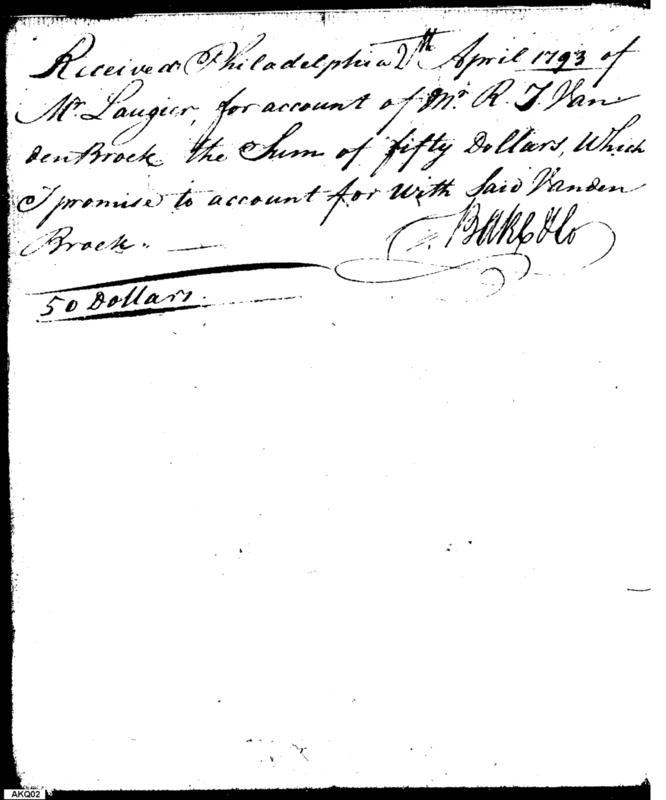 Received Philadelphia 2th April 1793 of
Mr Laugier, for account of Mr R. J. Van
den Broek the Sum of fifty Dollars, Which
I promise to account for with Said Vanden
Broek.
& Co
50 Dollars.
AKQ02